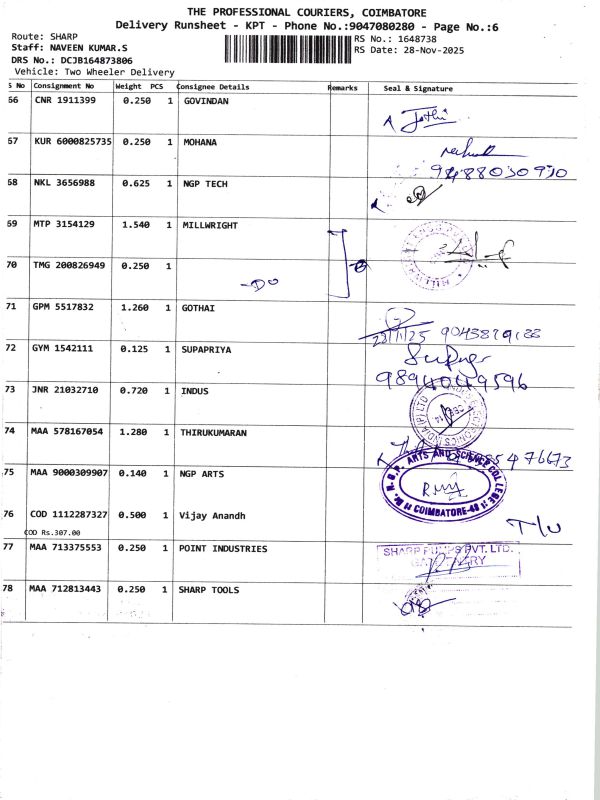 THE PROFESSIONAL COURIERS, COIMBATORE
Delivery Runsheet - KPT - Phone No.:9047080280 - Page No.:6
Route: SHARP
RS No.: 1648738
Staff: NAVEEN KUMAR.S
RS Date: 28-Nov-2025
DRS No.: DCJB164873806
Vehicle: Two Wheeler Delivery
S No Consignment No Weight PCS Consignee Details Remarks Seal & Signature
66 CNR 1911399 0.250 1 GOVINDAN
Jothi
67 KUR 6000825735 0.250 1 MOHANA
9488030930
68 NKL 3656988 0.625 1 NGP TECH
69 MTP 3154129 1.540 1 MILLWRIGHT
70 TMG 200826949 0.250 1
-DO
71 GPM 5517832 1.260 1 GOTHAI
28/11/25
72 GYM 1542111 0.125 1 SUPAPRIYA
9894049596
73 JNR 21032710 0.720 1 INDUS
74 MAA 578167054 1.280 1 THIRUKUMARAN
75 MAA 9000309907 0.140 1 NGP ARTS
ARTS AND SCIENCE COLLEGE
COIMBATORE-48
76 COD 1112287327 0.500 1 Vijay Anandh
COD Rs.307.00
77 MAA 713375553 0.250 1 POINT INDUSTRIES
SHARP PUMPS PVT. LTD.
78 MAA 712813443 0.250 1 SHARP TOOLS